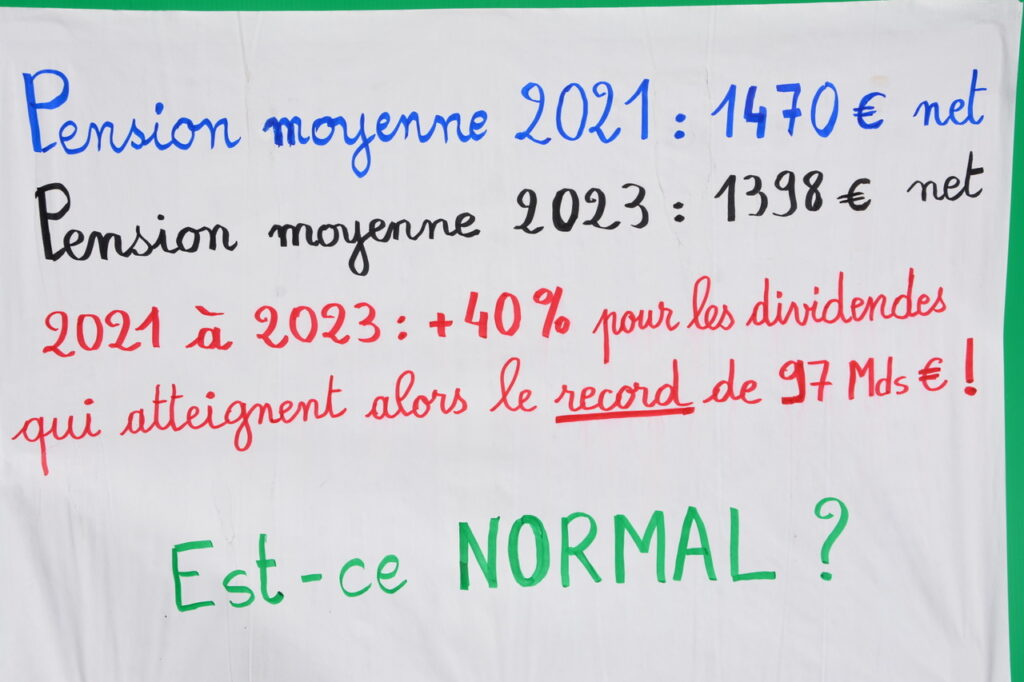 Pension moyenne 2021 : 1470 € net
Pension moyenne 2023 : 1398 € net
2021 à 2023 : +40% pour les dividendes
qui atteignent alors le record de 97 Mds € !
Est-ce NORMAL ?